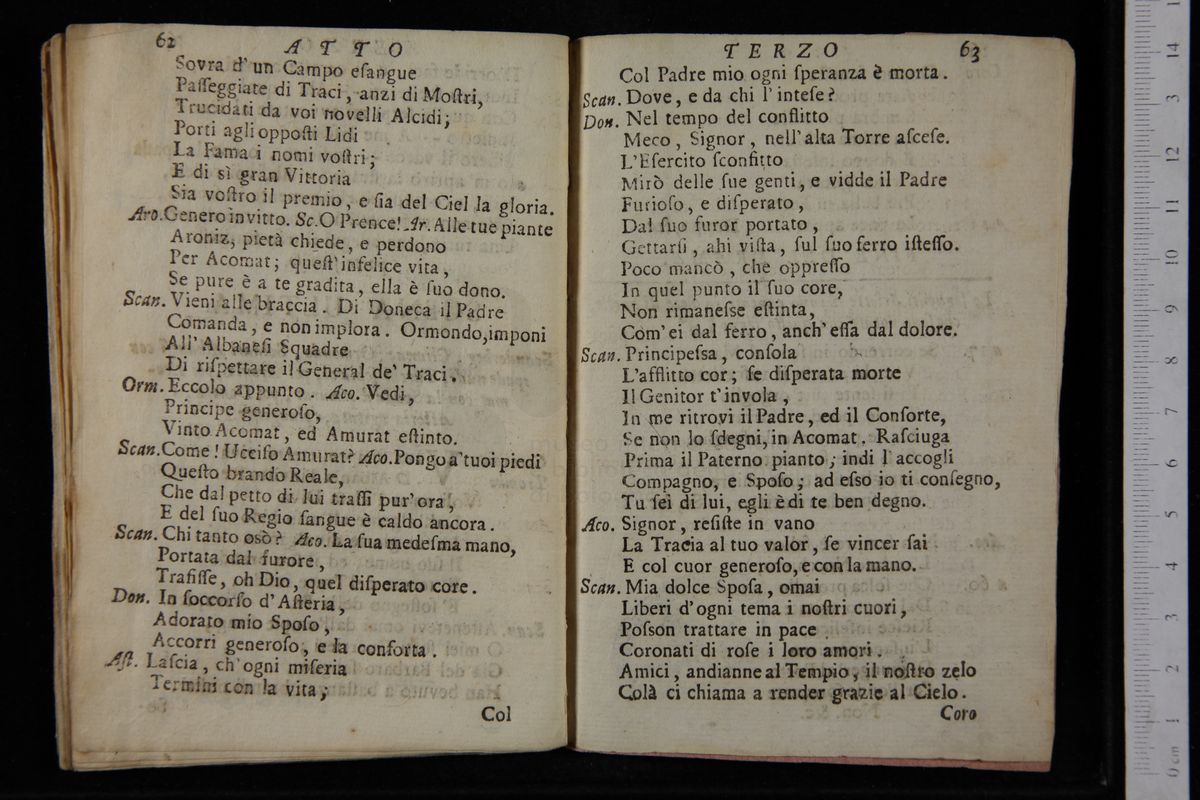 62 ATTO
Sovra d' un Campo eſangue
Paſſeggiate di Traci, anzi di Moſtri,
Trucidati da voi novelli Alcidi;
Porti agli oppoſti Lidi
La Fama i nomi voſtri;
E di sì gran Vittoria
Sia voſtro il premio, e ſia del Ciel la gloria.
Aro. Genero invitto. Sc. O Prence! Ar. Alle tue piante
Aroniz, pietà chiede, e perdono
Per Acomat; queſt' infelice vita,
Se pure è a te gradita, ella è ſuo dono.
Scan. Vieni alle braccia. Di Doneca il Padre
Comanda, e non implora. Ormondo, imponi
All' Albaneſi Squadre
Di riſpettare il General de' Traci.
Orm. Eccolo appunto. Aco. Vedi,
Principe generoſo,
Vinto Acomat, ed Amurat eſtinto.
Scan. Come! Ucciſo Amurat? Aco. Pongo a' tuoi piedi
Queſto brando Reale,
Che dal petto di lui traſſi pur' ora,
E del ſuo Regio ſangue è caldo ancora.
Scan. Chi tanto osò? Aco. La ſua medeſma mano,
Portata dal furore,
Trafiſſe, oh Dio, quel diſperato core.
Don. In ſoccorſo d' Aſteria,
Adorato mio Spoſo,
Accorri generoſo, e la conforta.
Aſt. Laſcia, ch' ogni miſeria
Termini con la vita;
Col
TERZO 63
Col Padre mio ogni ſperanza è morta.
Scan. Dove, e da chi l' inteſe?
Don. Nel tempo del conflitto
Meco, Signor, nell' alta Torre aſceſe.
L' Eſercito ſconfitto
Mirò delle ſue genti, e vidde il Padre
Furioſo, e diſperato,
Dal ſuo furor portato,
Gettarſi, ahi viſta, ſul ſuo ferro iſteſſo.
Poco mancò, che oppreſſo
In quel punto il ſuo core,
Non rimaneſse eſtinta,
Com' ei dal ferro, anch' eſſa dal dolore.
Scan. Principeſsa, conſola
L' afflitto cor; ſe diſperata morte
Il Genitor t' invola,
In me ritrovi il Padre, ed il Conſorte,
Se non lo ſdegni, in Acomat. Raſciuga
Prima il Paterno pianto; indi l' accogli
Compagno, e Spoſo; ad eſso io ti conſegno,
Tu ſei di lui, egli è di te ben degno.
Aco. Signor, reſiſte in vano
La Tracia al tuo valor, ſe vincer ſai
E col cuor generoſo, e con la mano.
Scan. Mia dolce Spoſa, omai
Liberi d' ogni tema i noſtri cuori,
Poſson trattare in pace
Coronati di roſe i loro amori.
Amici, andianne al Tempio, il noſtro zelo
Colà ci chiama a render grazie al Cielo.
Coro
14
13
12
11
10
9
8
7
6
5
4
3
2
1
0 cm